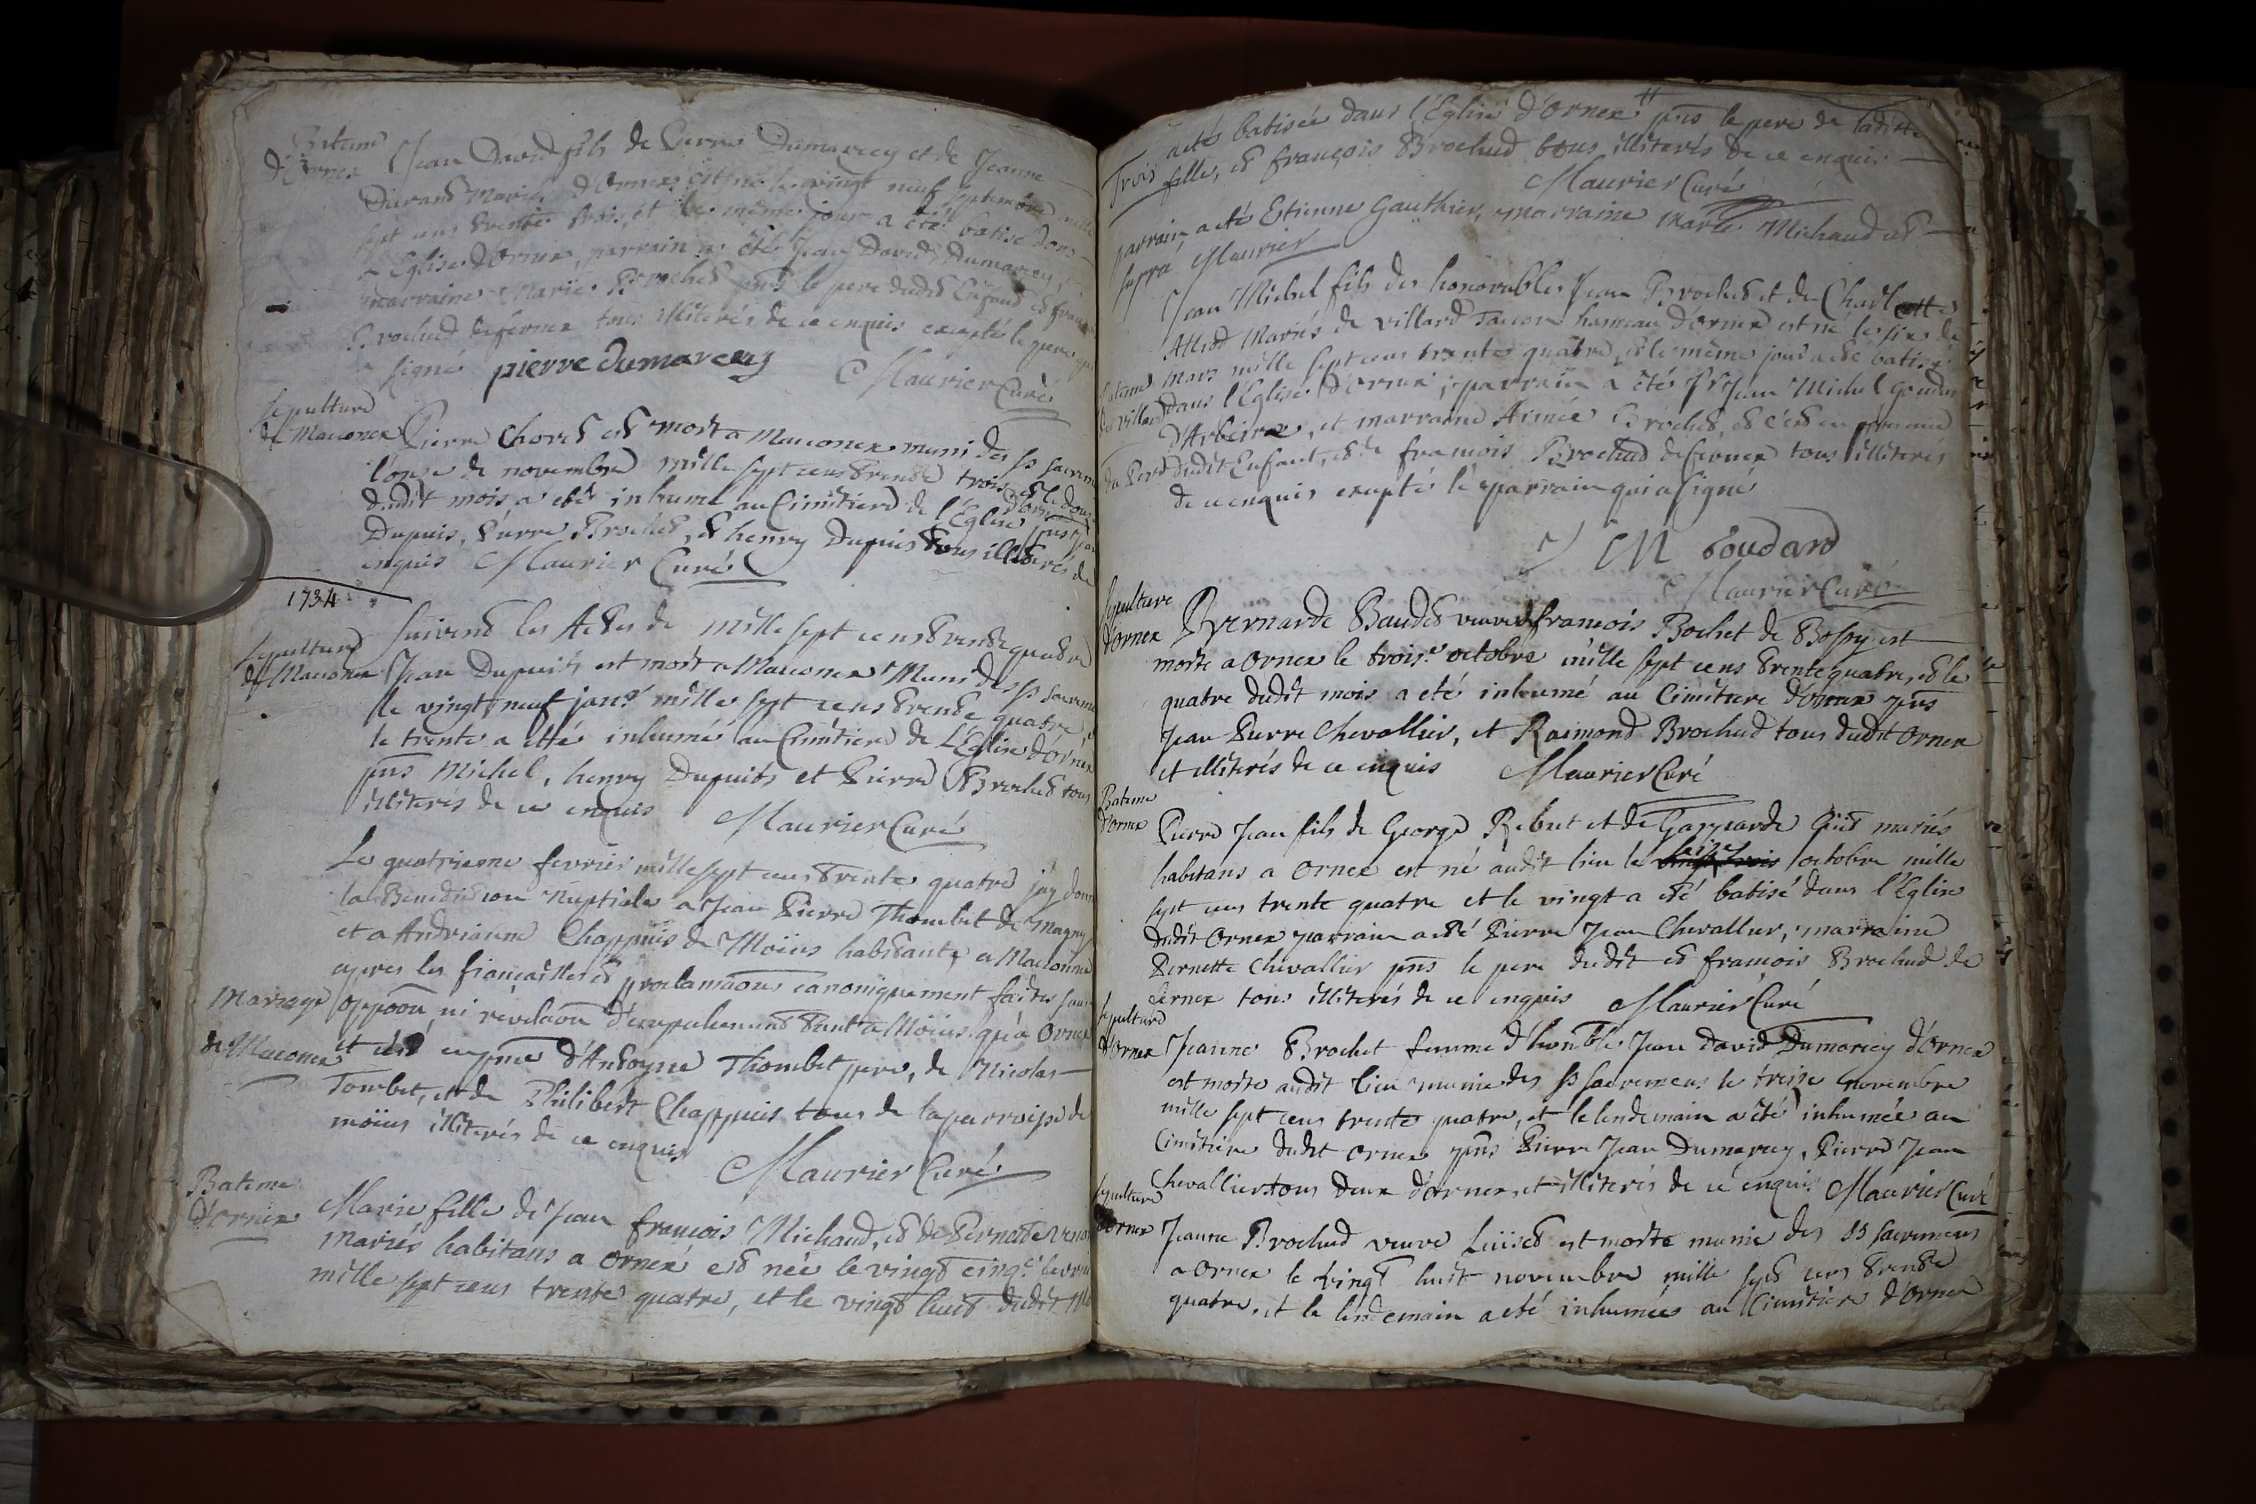 Bateme
d'Ornex
Jean David fils de Pierre Dumarcey et de Jeanne
Durand Mariés d'Ornex est né le vingt neuf septembre mille
sept cens trente trois, et le même jour a été batisé dans
l'Eglise d'Ornex, parrain a été Jean David Dumarcey,
marraine Marie Brochet pns le pere dudt Enfant et
Brochud de fernex tous illiterés de ce enquis excepté le pere qui
a signé pierre dumarcey
Maurier Curé
sepulture
de Maconex
Pierre Choret est mort a Maconex muni des ss sacrem
l'onze de novembre mille sept cens trente trois et le douze
dudit mois a eté inhumé au Cimitiere de l'Eglise d'Ornex pns Jean
Dupuis, Pierre Brochet, et henry Dupuis tous illiterés de
enquis Maurier Curé
1734
Suivent les Actes de mille sept cens trente quatre
sepulture
de Maconex
Jean Dupuits est mort a Maconex Muni des ss sacrem
le vingt neuf janv.r mille sept cens trente quatre
le trente a etté inhumé au Cimitiere de L'Eglise d'Ornex
pns Michel, henry Dupuits et Pierre Brochet tous
illiterés de ce enquis Maurier Curé
Le quatrieme fevrier mille sept cens trente quatre j'ay donné
la Benediction Nuptiale a Jean Pierre Thombet de Magny
et a Andrianne Chappuis de Moïns habitante a Maconnex
apres les fiançailles et proclamaõns canoniquement faites sans
Mariage
de Maconex
oppoõn ni revelaõn d'empechement tant a Moïns qu'a Ornex
et c'est en pnce d'Antoyne Thombet pere, de Nicolas
Tombet, et de Philibert Chappuis tous de la parroisse de
moïns illiterés de ce enquis
Maurier Curé
Bateme
d'Ornex
Marie fille de Jean françois Michaud, et de Pernette
Mariés habitans a Ornex est née le vingt cinq.e fevrier
mille sept cens trente quatre, et le vingt huit dudit
a eté batisée dans l'Eglise d'Ornex # pns le pere de laditte
Trois fille, et françois Brochud tous illiterés de ce enquis
Maurier Curé
parrain a eté Etienne Gauthier, marraine Marie Michaud ut
supra Maurier
Jean Michel fils des honorables Jean Brochet et de Charlotte
Alliod Mariés de Villard Tacon hameau d'Ornex est né le six de
Bateme
de villard
Mars mille sept cens trente quatre, et le même jour a été batisé
dans l'Eglise d'Ornex; parrain a été Sr Jean Michel goudar
d'Arbeirex, et marraine Aimée Brochet, et c'est en presence
du Pere dudit Enfant, et de francois Brochud de fernex tous illiterés
de ce enquis excepté le parrain qui a signé
J M Goudard
Maurier Curé
sepulture
d'ornex
Bernarde Baudet veuve de francois Bochet de Bossy est
morte a Ornex le trois.e octobre mille sept cens trente quatre, et le
quatre dudit mois a eté inhumé au Cimitiere d'Ornex pns
Jean Pierre Chevallier, et Raimond Brochud tous dudit Ornex
et illiterés de ce enquis Maurier Curé
Bateme
d'Ornex
Pierre Jean fils de George Rebut et de Gasparde mariés
habitans a Ornex est né audit lieu le seize octobre mille
sept cens trente quatre et le vingt a eté batisé dans l'Eglise
dudit Ornex parrain a eté Pierre Jean Chevallier, marraine
Pernette Chevallier pns le pere dudit et francois Brochud de
fernex tous illiterés de ce enquis Maurier Curé
sepulture
d'Ornex
Jeanne Brochet femme d'honble Jean David Dumarcey d'Ornex
est morte audit lieu munie des ss sacremens le treize novembre
mille sept cens trente quatre, et le lendemain a été inhumée au
Cimitiere dudit Ornex pns Pierre Jean Dumarcey, Pierre Jean
Chevallier tous deux d'ornex, et illiterés de ce enquis Maurier Curé
sepulture
d'Ornex
Jeanne Brochud veuve est morte munie des SS sacremens
a Ornex le vingt huit novembre mille sept cens trente
quatre, et le lendemain a eté inhumée au Cimitiere d'Ornex